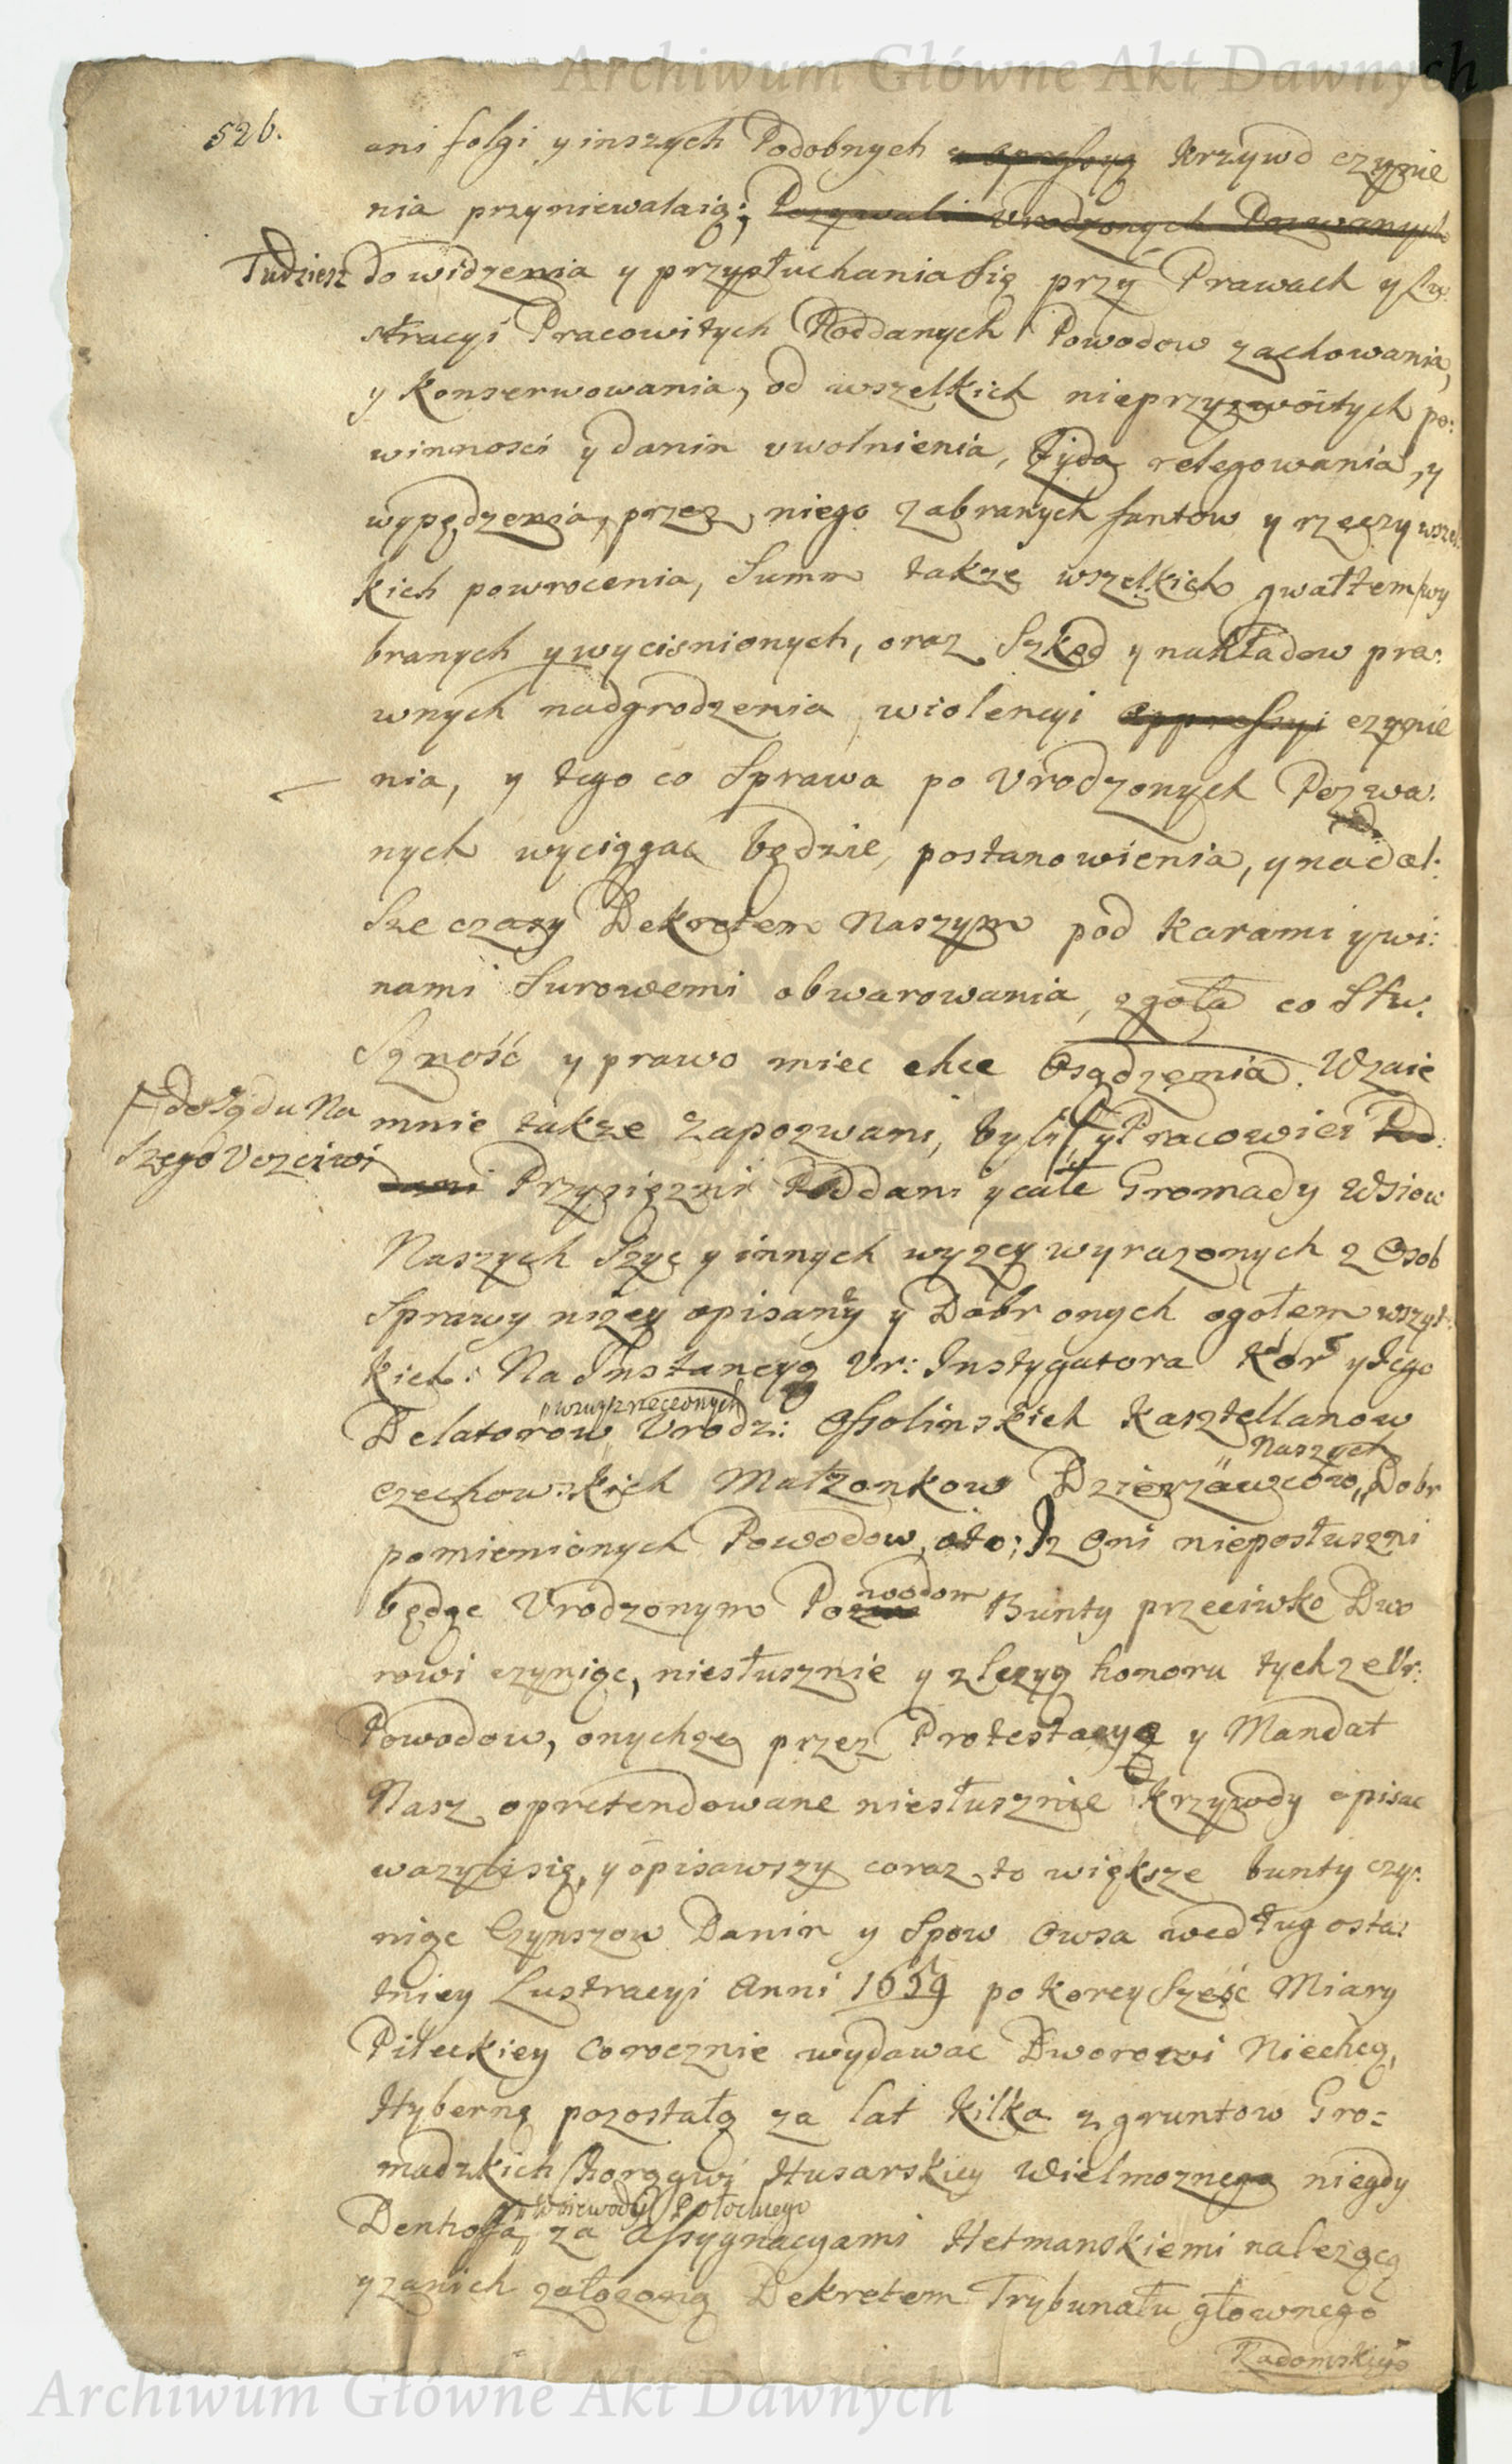 Archiwum Główne Akt Dawnych
526.
ani folgi y inszych Podobnych y opressyą Krzywd czynie
nia przyniewalaią; Pozywali Urodzonych Pozwanych
Tudziesz do widzenia y przysłuchania się przy Prawach y Lu-
stracyi Pracowitych Poddanych Powodow zachowania,
y Konserwowania, od wszelkich nieprzyzwoitych po:
winnosci y danin uwolnienia, Zyda relegowania, y
wypędzenia, przez niego zabranych fantow y rzeczy wszel:
kich powrocenia, Summ takze wszelkich gwałtem wy
branych y wycisnionych, oraz Szkod y nakładow pra:
wnych nadgrodzenia, wiolencyi oppressyi czynie
nia, y tego co Sprawa po Urodzonych Pozwa:
nych wyciągac będzie, postanowienia, y na dal:
sze czasy Dekretem Naszym pod Karami y wi:
nami Surowemi obwarowania, zgoła co Słu:
Szność y prawo miec chce Osądzenia. Wzaie
do Sądu Na
szego Uczciwi
mnie takze Zapozwani, byli y Pracowici Pod:
dani Przysiężni Poddani y całe Gromady Wsiow
Naszych Szyc y innych wyzey wyrazonych z Osob
Sprawy nizey opisaney y Dobr onych ogołem wszyt:
kich: Na Instancyą Ur: Instygatora Kor y Jego
Delatorow wzwyz rzeczonych Urodz: Ossolinskich Kasztellanow
czechowskich Małzonkow Dzierzawcow Naszych Dobr
pomienionych Powodow, oto; Iz Oni niePosłuszni
będąc Urodzonym Powodom Bunty przeciwko Dwo
rowi czyniąc, niesłusznie y z lezyą honoru tychze Ur:
Powodow, onychze przez Protestacyą y Mandat
Nasz opretendowane niesłusznie Krzywdy opisac
wazyli się, y opisawszy coraz to większe bunty czy:
niąc Czynszow Danin y Spow Owsa według osta:
tniey Lustracyi Anni 1659 po Korcy Sześć Miary
Pileckiey Corocznie wydawac Dworowi Niechcą,
Hyberną pozostałą za lat Kilka z gruntow Gro=
madzkich Chorągwi Husarskiey Wielmoznego niegdy
Denhoffa, Woiewody Połockiego za Assygnacyami Hetmanskiemi nalezącą
y zanich załozoną Dekretem Trybunału głownego
Radomskiego
Archiwum Główne Akt Dawnych